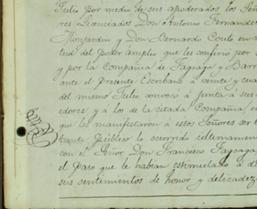 Julio por medio de sus apoderados los Seño
res Licenciados Don Antonio Fernandez
Monjardin y Don Bernardo Couto en vir
tud del poder amplio que les confirió por
y por la Compañia de Fagoaga y Barr
ante el presente Escribano á veinte y cua
del mismo Julio convocó á junta á sus
edores y á los de la citada Compañia, en
que les manifestaron á estos Señores ser
publico lo ocurrido ultimamente
con el Señor Don Francisco Fagoaga
el paso que le habian estimulado á d
sus sentimientos de honor y delicadez